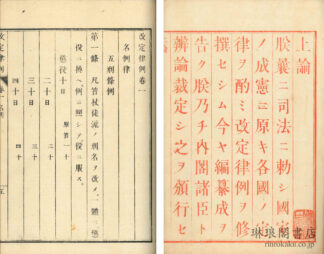 上諭
朕曩ニ司法ニ勅シ國家
ノ成憲ニ原キ各國ノ定
律ヲ酌ミ改定律例ヲ修
撰セシム今ヤ編纂成ヲ
告ク朕乃チ内閣諸臣ト
辨論裁定シ之ヲ頒行セ
改定律例卷一
名例律
五刑條例
第一條 凡笞杖徒流ノ刑名ヲ改メ一體ニ懲
役ニ換ヘ例ニ照シテ役ニ服ス
懲役十日 原笞一十
二十日 二十
三十日 三十
四十日 四十
改定律例 卷一
琳琅閣書店
rinrokaku.co.jp